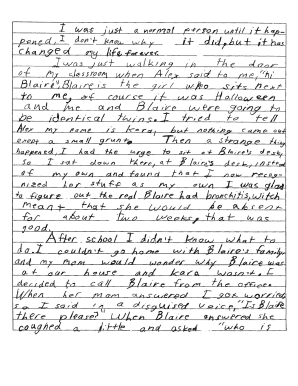 I was just a normal person until it hap-
pened. I don't know why it did, but it has
changed my life forever.
I was just walking in the door
of my classroom when Alex said to me, "hi
Blaire". Blaire is the girl who sits next
to me, of course it was Halloween
and me and Blaire were going to
be identical twins. I tried to tell
Alex my name is Kara, but nothing came out
except a small grunt. Then a strange thing
happened, I had the urge to sit at Blaire's desk,
so I sat down there, at Blaire's desk, instead
of my own and found that I now recog-
nized her stuff as my own I was glad
to figure out the real Blaire had bronchitis, witch
meant that she would be absent
for about two weeks, that was
good.
After school I didn't know what to
do. I couldn't go home with Blaire's family
and my mom would wonder why Blaire was
at our house and Kara wasn't. I
decided to call Blaire from the office.
When her mom answered I got worried
so I said in a disguised voice, "Is Blaire
there please?" When Blaire answered she
coughed a little and asked "who is